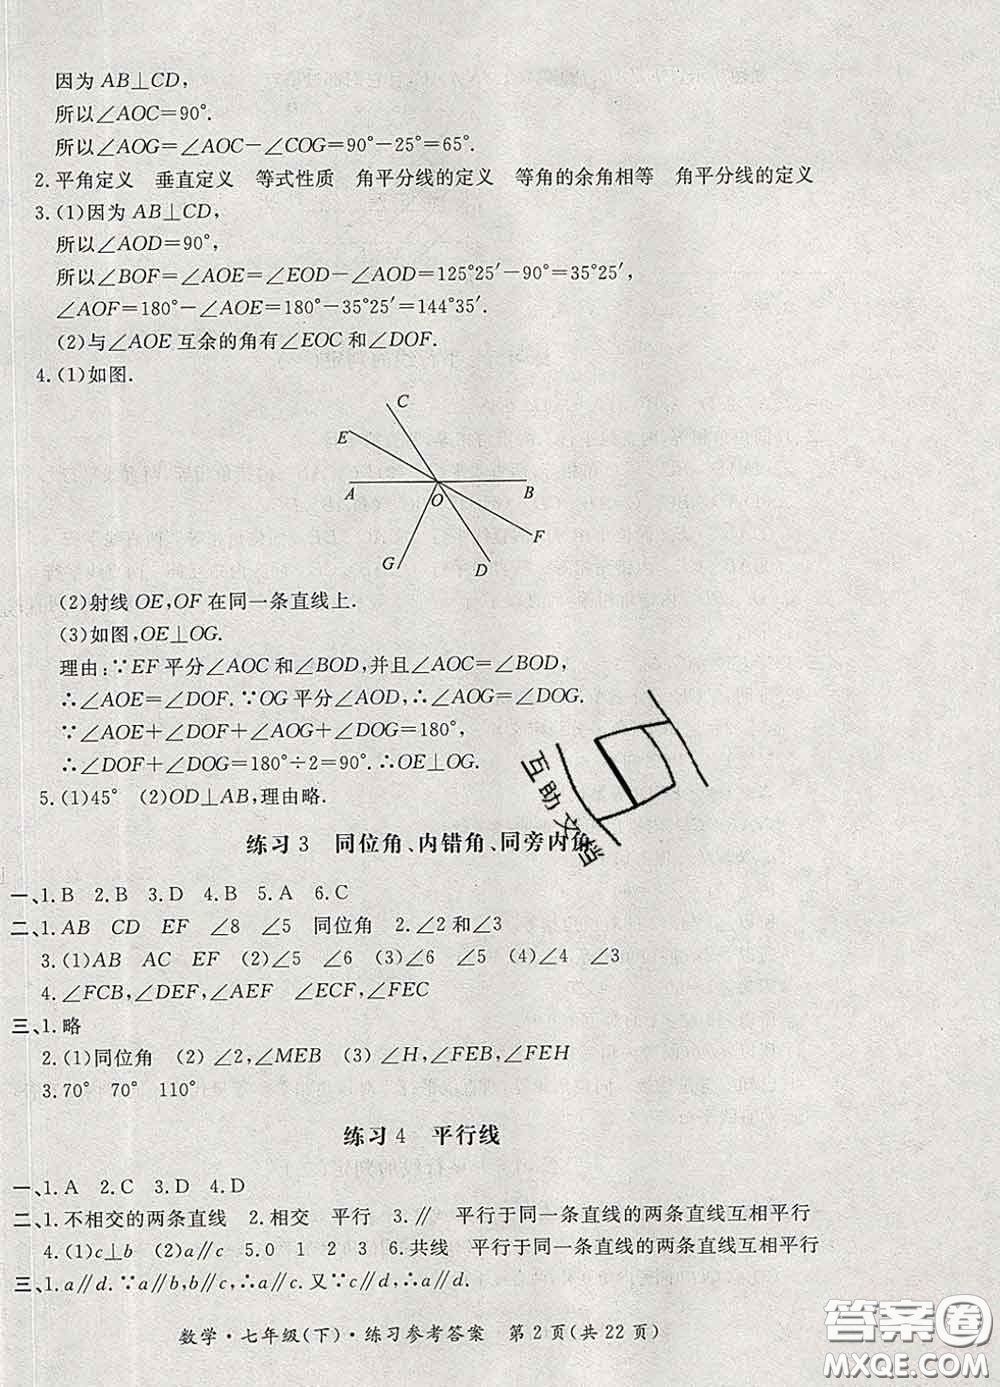 因为 AB⊥CD,
所以∠AOC=90°.
所以∠AOG=∠AOC-∠COG=90°-25°=65°.
2.平角定义 垂直定义 等式性质 角平分线的定义 等角的余角相等 角平分线的定义
3.(1)因为 AB⊥CD,
所以∠AOD=90°,
所以∠BOF=∠AOE=∠EOD-∠AOD=125°25′-90°=35°25′,
∠AOF=180°-∠AOE=180°-35°25′=144°35′.
(2)与∠AOE 互余的角有∠EOC 和∠DOF.
4.(1)如图.
C
E
A
O
B
F
G
D
(2)射线 OE,OF 在同一条直线上.
(3)如图,OE⊥OG.
理由:∵EF 平分∠AOC 和∠BOD,并且∠AOC=∠BOD,
∴∠AOE=∠DOF.∵OG 平分∠AOD,∴∠AOG=∠DOG.
∵∠AOE+∠DOF+∠AOG+∠DOG=180°,
∴∠DOF+∠DOG=180°÷2=90°.∴OE⊥OG.
5.(1)45° (2)OD⊥AB,理由略.
互助文档
练习 3 同位角、内错角、同旁内角
一、1.B 2.B 3.D 4.B 5.A 6.C
二、1.AB CD EF ∠8 ∠5 同位角 2.∠2 和∠3
3.(1)AB AC EF (2)∠5 ∠6 (3)∠6 ∠5 (4)∠4 ∠3
4.∠FCB,∠DEF,∠AEF ∠ECF,∠FEC
三、1.略
2.(1)同位角 (2)∠2,∠MEB (3)∠H,∠FEB,∠FEH
3.70° 70° 110°
练习 4 平行线
一、1.A 2.C 3.D 4.D
二、1.不相交的两条直线 2.相交 平行 3.∥ 平行于同一条直线的两条直线互相平行
4.(1)c⊥b (2)a∥c 5.0 1 2 3 6.共线 平行于同一条直线的两条直线互相平行
三、1.a∥d.∵a∥b,b∥c,∴a∥c.又∵c∥d,∴a∥d.
数学·七年级(下)·练习参考答案 第 2 页(共 22 页)
答案圈
MXQE.COM